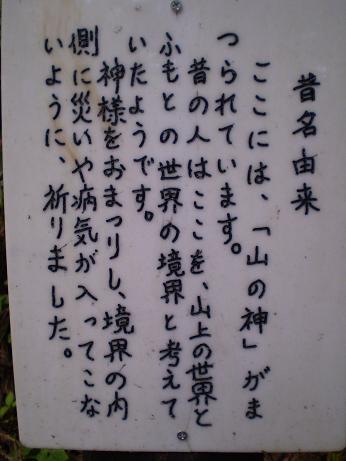 昔名由来
ここには、「山の神」がま
つられています。
昔の人はここを、山上の世界と
ふもとの世界の境界と考えて
いたようです。
神様をおまつりし、境界の内
側に災いや病気が入ってこな
いように、祈りました。